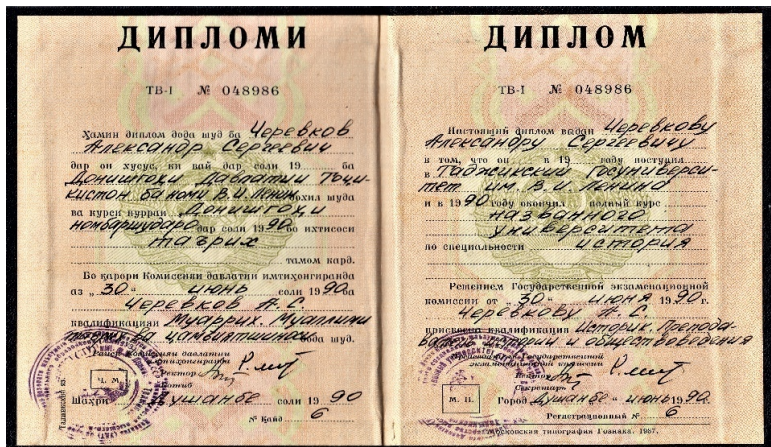 ДИПЛОМИ
ТВ-I № 048986
Ҳамин диплом дода шуд ба Черевков
Александр Сергеевич
дар он хусус, ки вай дар соли 19 ба
Донишгоҳи Давлатии Тоҷи-
кистон ба номи В.И. Ленин дохил шуда
ва курси пурраи Донишгоҳи
номбаршударо дар соли 1990 бо ихтисоси
таърих
тамом кард.
Бо қарори Комиссияи давлатии имтиҳонгиранда
аз „30“ июнь соли 1990 ба
Черевков А.С.
квалификацияи Муаррих. Муаллими
таърих ва ҷамъиятшиносӣ дода шуд.
Раиси Комиссияи давлатии
имтиҳонгиранда
Ректор
Котиб
Ҷ. М.
Шаҳри Душанбе соли 1990
№ қайд 6
ДИПЛОМ
ТВ-I № 048986
Настоящий диплом выдан Черевкову
Александру Сергеевичу
в том, что он в 19 году поступил
в Таджикский Госуниверси-
тет им. В.И. Ленина
и в 1990 году окончил полный курс
названного
университета
по специальности история
Решением Государственной экзаменационной
комиссии от „30“ июня 1990 г.
Черевкову А.С.
присвоена квалификация Историк. Препода-
ватель истории и обществоведения
Председатель Государственной
экзаменационной комиссии
Ректор
Секретарь
М. П.
Город Душанбе июнь 1990.
Регистрационный № 6
Московская типография Гознака. 1987.